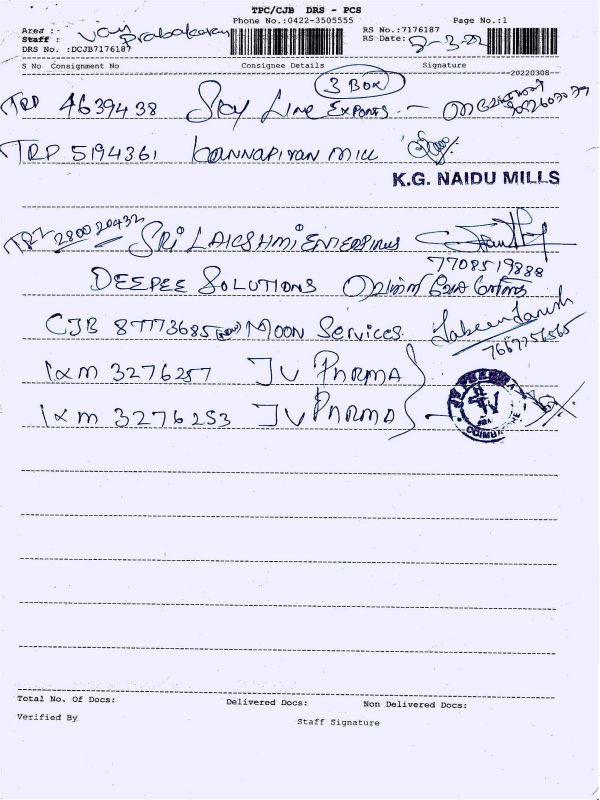 TPC/CJB DRS - PCS
Phone No.:0422-3505555 Page No.:1
Area :: Van RS No.:7176187
Staff : Prabakaran RS Date: 8-3-22
DRS No. :DCJB7176187
S No Consignment No Consignee Details Signature
20220308
3 BOX
TRP 4639438 Sky Line Exports
TRP 5194361 Kannapiran Mill
K.G. NAIDU MILLS
TRZ 280020432 Sri Lakshmi Enterprises
7708519888
DEEPEE SOLUTIONS
CJB 87773685 Moon Services
7667256565
IXM 3276257 JV PHARMA
IXM 3276253 JV PHARMA
JV PHARMA COIMBATORE
Total No. Of Docs: Delivered Docs: Non Delivered Docs:
Verified By Staff Signature